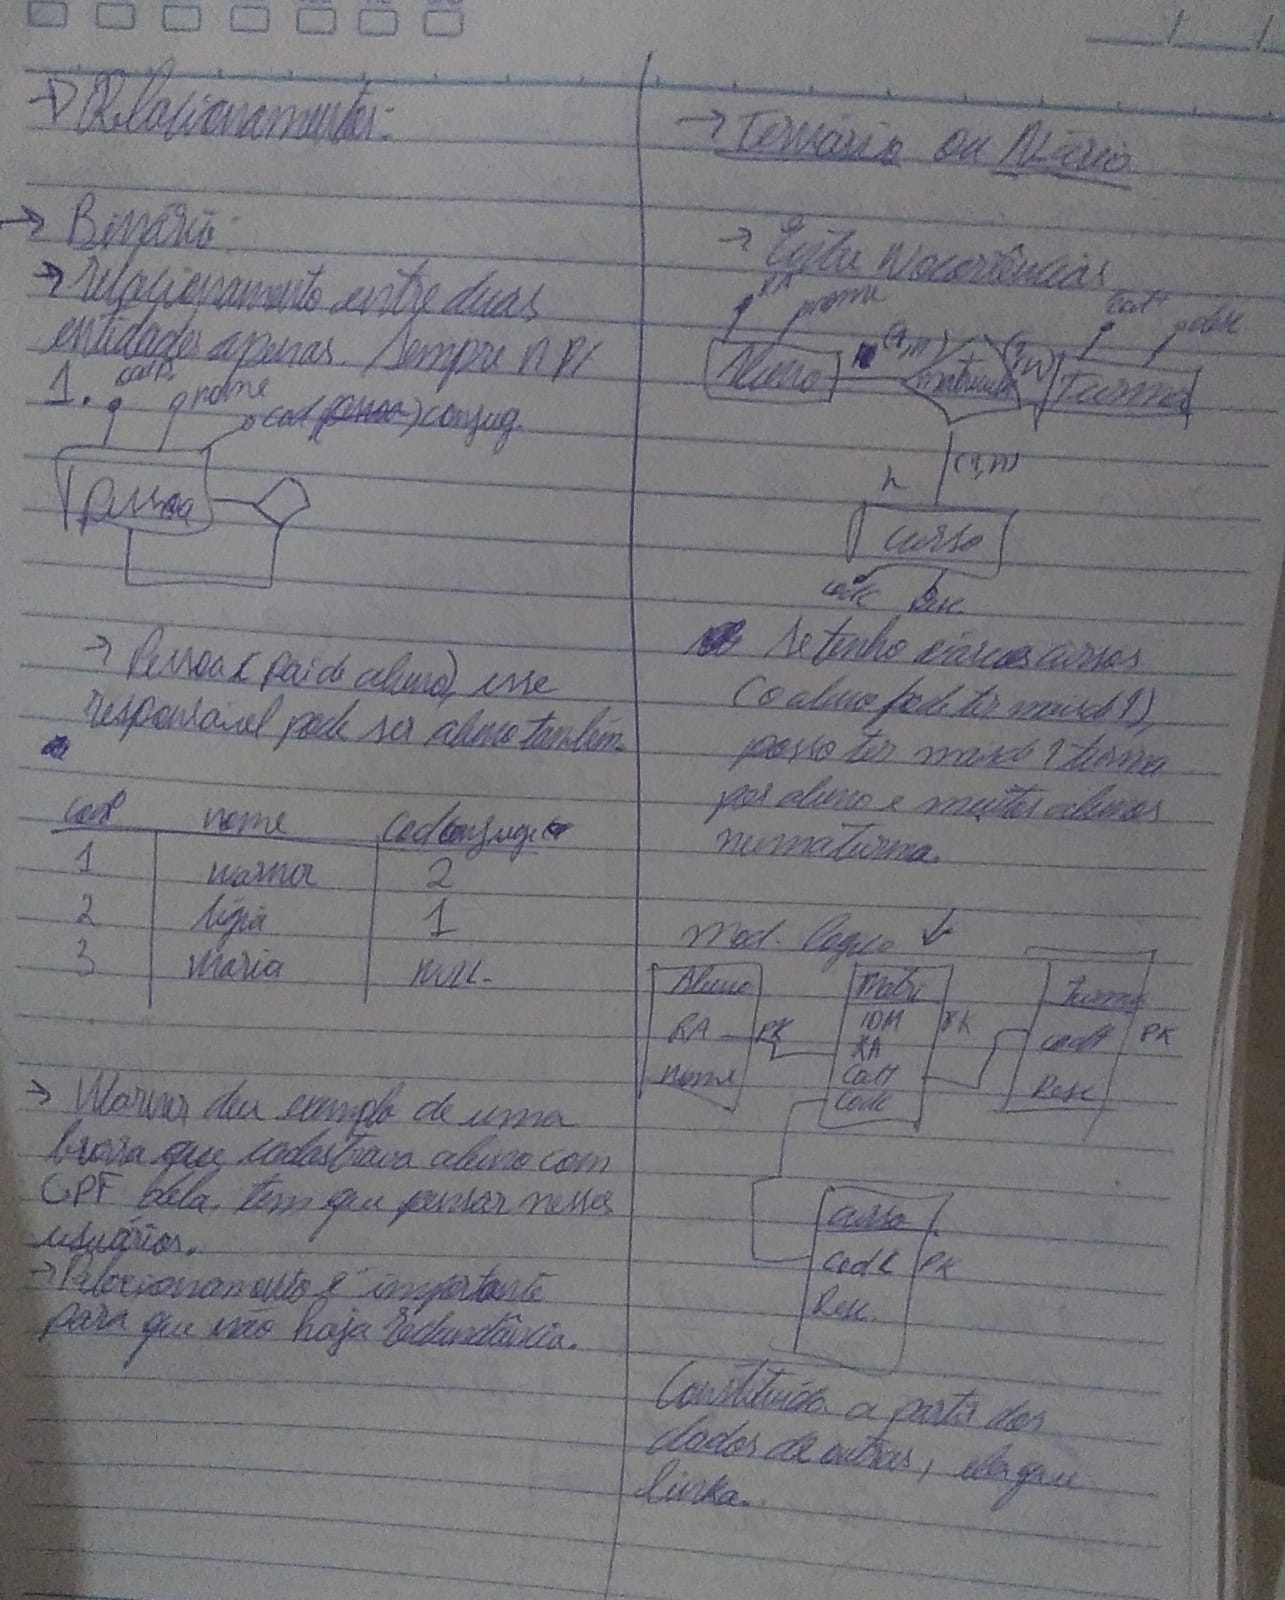 → Relacionamentos:
→ Binário:
→ relacionamento entre duas
entidades apenas. Sempre n p/
1.
codP nome
cod (pessoa) conjug.
Pessoa
→ Pessoa (pai do aluno), esse
responsável pode ser aluno também.
codP nome codconjuge
1 warner 2
2 ligia 1
3 Maria NULL
→ Warner deu exemplo de uma
que cadastrava aluno com
CPF dela, tem que pensar nesses
usuários.
→ Relacionamento é importante
para que não haja redundância.
→ Ternário ou N-ário
→ Entre N ocorrências
RA nome codT desc
Aluno (1,n) matricula (1,N) Turma
(1,n)
curso
codc Desc
Se tenho vários cursos
(o aluno pode ter mais d 1),
posso ter mais d 1 turma
por aluno e muitos alunos
numa turma.
mod. logico ↓
Aluno Matri Turma
RA PK IDM PK codt PK
nome RA Desc
CodT
Codc
curso
CodC PK
Desc
Constituída a partir dos
dados de outras, ela que
linka.